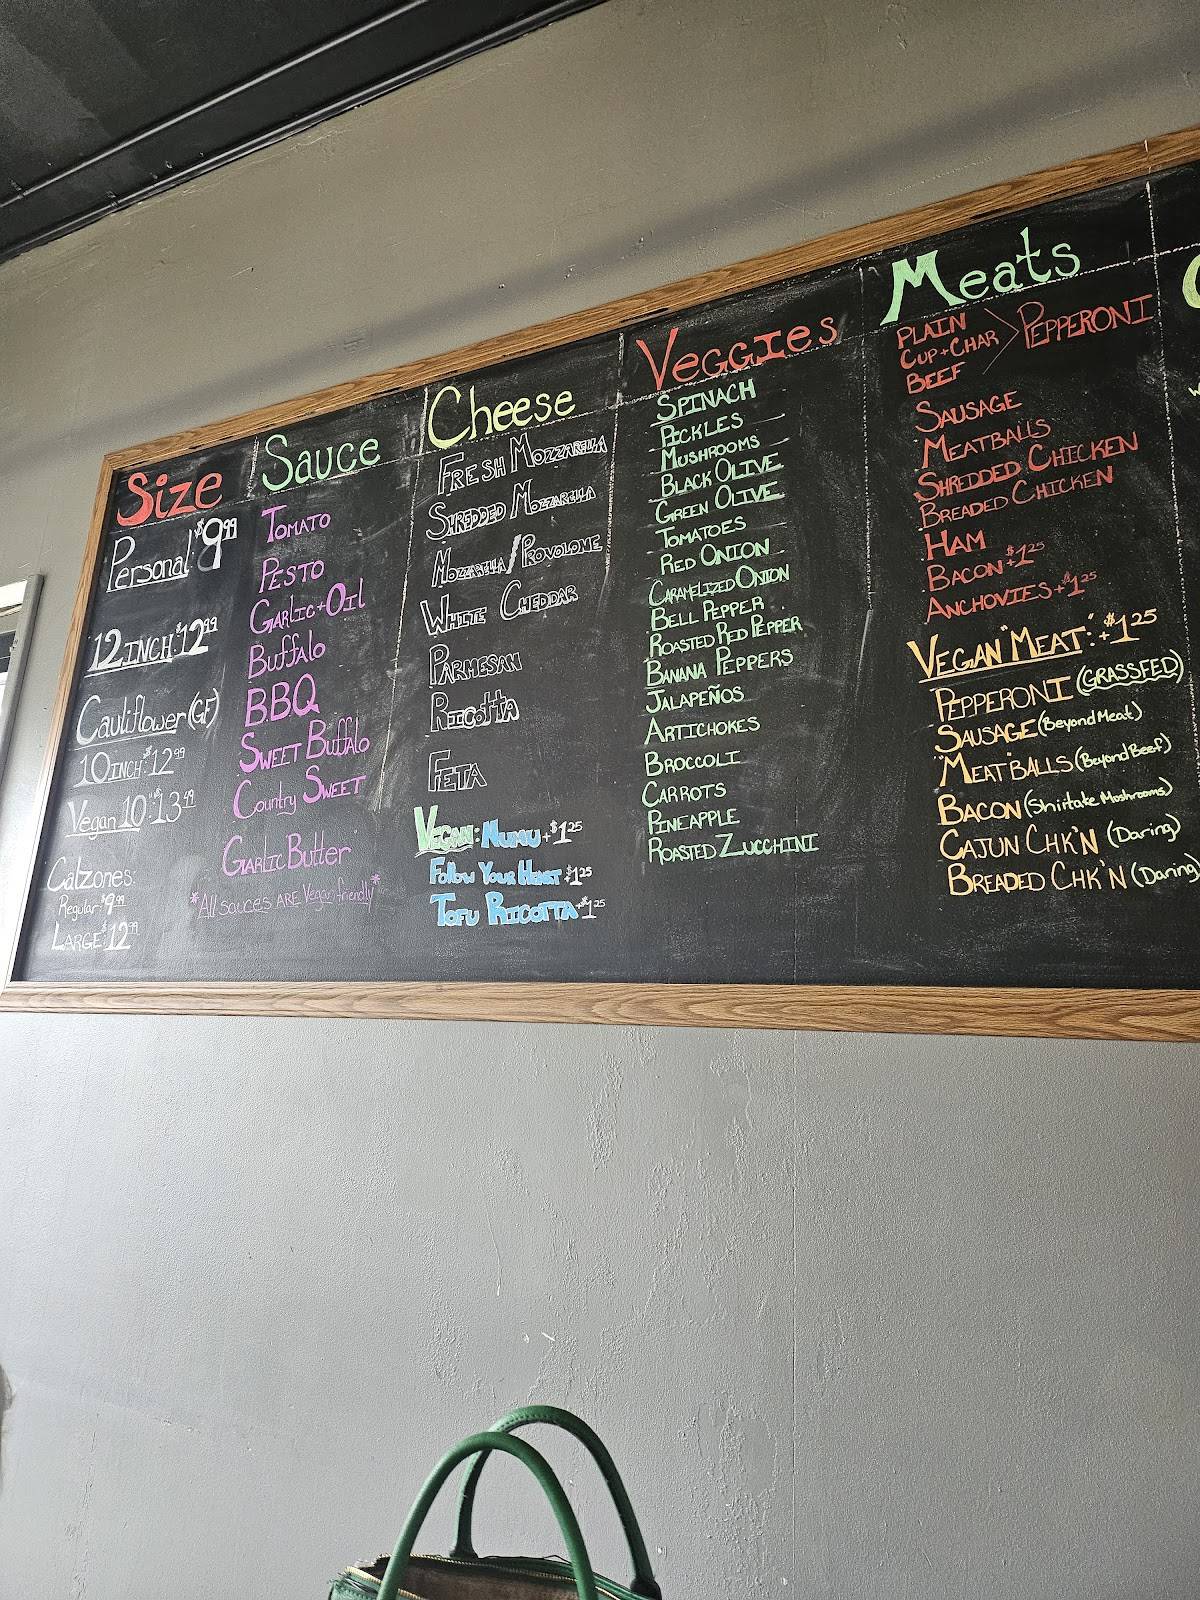 Size
Personal: $9.99
12 INCH: $12.99
Cauliflower (GF)
10 INCH: $12.99
Vegan 10": $13.49
Calzones:
Regular: $9.99
LARGE: $12.99
Sauce
TOMATO
PESTO
GARLIC+OIL
Buffalo
BBQ
SWEET Buffalo
Country SWEET
GARLIC Butter
*All sauces ARE Vegan friendly*
Cheese
FRESH MOZZARELLA
SHREDDED MOZZARELLA
MOZZARELLA/PROVOLONE
WHITE CHEDDAR
PARMESAN
RICOTTA
FETA
VEGAN: NUMU +$1.25
Follow YOUR HEART +$1.25
TOFU RICOTTA +$1.25
VEGGIES
SPINACH
PICKLES
MUSHROOMS
BLACK OLIVE
GREEN OLIVE
TOMATOES
RED ONION
CARAMELIZED ONION
BELL PEPPER
ROASTED RED PEPPER
BANANA PEPPERS
JALAPEÑOS
ARTICHOKES
BROCCOLI
CARROTS
PINEAPPLE
ROASTED ZUCCHINI
Meats
PLAIN
CUP+CHAR > PEPPERONI
BEEF
SAUSAGE
MEATBALLS
SHREDDED CHICKEN
BREADED CHICKEN
HAM
BACON +$1.25
ANCHOVIES +$1.25
VEGAN "MEAT": +$1.25
PEPPERONI (GRASSFED)
SAUSAGE (Beyond Meat)
MEATBALLS (Beyond Beef)
BACON (Shiitake Moshrooms)
CAJUN CHK'N (Daring)
BREADED CHK'N (Daring)